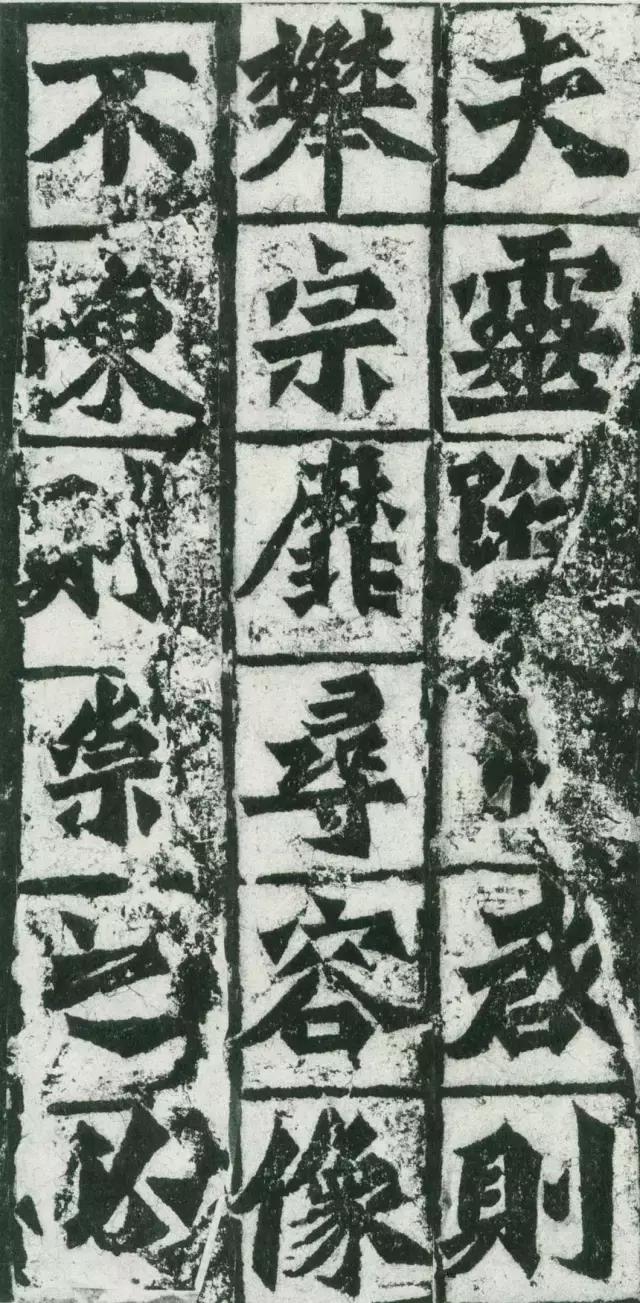 夫靈啓則
攀宗靡尋容像
不陳則崇之必